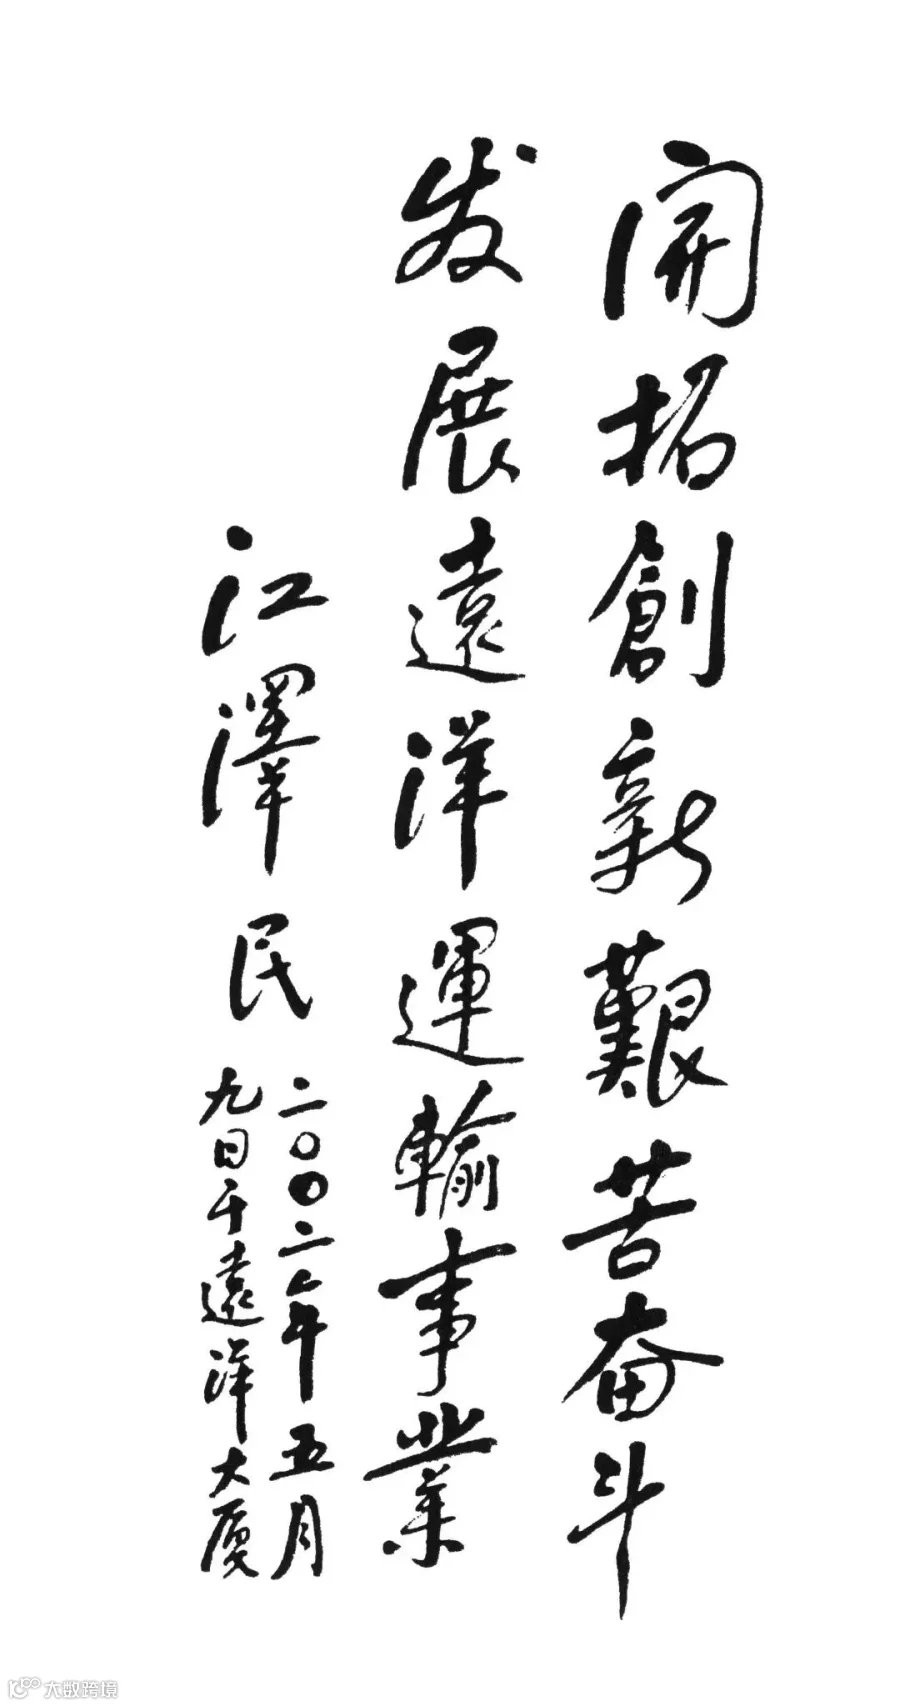 開拓創新艱苦奋斗
发展遠洋運輸事業
江澤民
二〇〇二年五月
九日于遠洋大厦
大数跨境